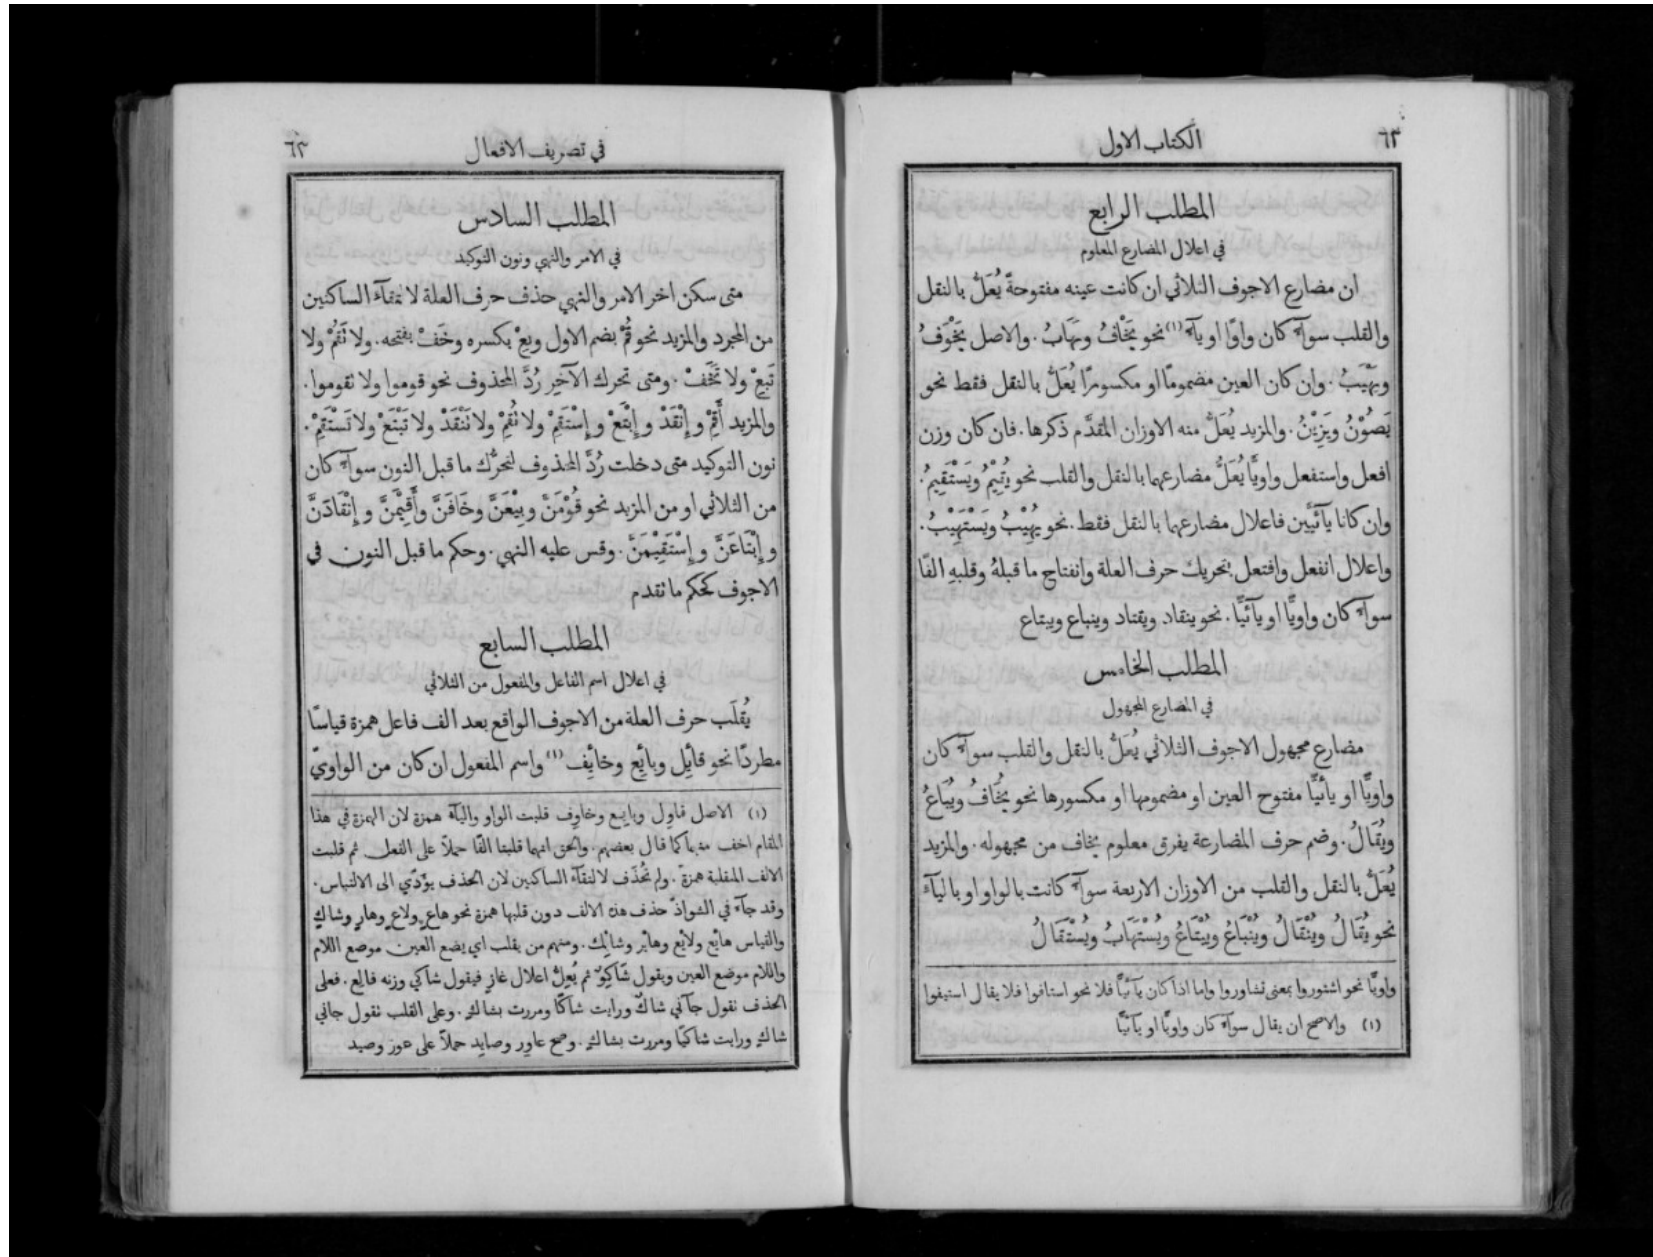 ٦٢
الكتاب الاول
المطلب الرابع
في اعلال المضارع المعلوم
ان مضارع الاجوف الثلاثي ان كانت عينه مفتوحةً يُعَلُّ بالنقل
والقلب سوآءٌ كان واوًا او يآءً (١) نحو يَخْافُ ويَهَابُ. والاصل يَخْوَفُ
ويَهْيَبُ. وان كان العين مضمومًا او مكسورًا يُعَلُّ بالنقل فقط نحو
يَصُوْنُ ويَزِيْنُ. والمزيد يُعَلُّ منه الاوزان المتقدّم ذكرها. فان كان وزن
افعل واستفعل واويًّا يُعَلُّ مضارعهما بالنقل والقلب نحو يُقِيْمُ ويَسْتَقِيمُ.
وان كانا يآئيَّين فاعلال مضارعهما بالنقل فقط. نحو يُهِيْبُ ويَسْتَهِيْبُ.
واعلال انفعل وافتعل بتحريك حرف العلة وانفتاح ما قبلهُ وقلبهِ الفًا
سوآءٌ كان واويًّا او يآئيًّا. نحو ينقاد ويقتاد وينباع ويبتاع
المطلب الخامس
في المضارع المجهول
مضارع مجهول الاجوف الثلاثي يُعَلُّ بالنقل والقلب سوآءٌ كان
واويًّا او يائيًّا مفتوح العين او مضمومها او مكسورها نحو يُخَافُ ويُبَاعُ
ويُقَالُ. وضم حرف المضارعة يفرق معلوم يخاف من مجهوله. والمزيد
يُعَلُّ بالنقل والقلب من الاوزان الاربعة سوآءٌ كانت بالواو او باليآء
نحو يُقَالُ ويُنْقَالُ ويُنْبَاعُ ويُبْتَاعُ ويُسْتَهَابُ ويُسْتَقَالُ
واويًّا نحو اشتوروا بمعنى تشاوروا واما اذا كان يآئيًّا فلا نحو استافوا فلا يقال استيفوا
(١) والاصح ان يقال سوآءٌ كان واويًّا او يآئيًّا
في تصريف الافعال
٦٣
المطلب السادس
في الامر والنهي ونون التوكيد
متى سكن اخر الامر والنهي حذف حرف العلة لالتقآء الساكنين
من المجرد والمزيد نحو قُمْ بضم الاول وبِعْ بكسره وخَفْ بفتحه. ولا تَقُمْ ولا
تَبِعْ ولا تَخَفْ. ومتى تحرك الآخِر رُدَّ المحذوف نحو قوموا ولا تقوموا.
والمزيد أَقِمْ و إِنْقَدْ و إِبْتَعْ و إِسْتَقِمْ ولا تُقِمْ ولا تَنْقَدْ ولا تَبْتَعْ ولا تَسْتَقِمْ.
نون التوكيد متى دخلت رُدَّ المحذوف لتحرُّك ما قبل النون سوآءٌ كان
من الثلاثي او من المزيد نحو قُوْمَنَّ وبِيْعَنَّ وخَافَنَّ وأَقِيْمَنَّ و إِنْقَادَنَّ
و إِبْتَاعَنَّ و إِسْتَقِيْمَنَّ. وقس عليه النهي. وحكم ما قبل النون في
الاجوف كحكم ما تقدم
المطلب السابع
في اعلال اسم الفاعل والمفعول من الثلاثي
يُقلَب حرف العلة من الاجوف الواقع بعد الف فاعل همزة قياسًا
مطردًا نحو قآئِل وبآئِع وخائِف (١) واسم المفعول ان كان من الواويّ
(١) الاصل قاوِل وبايِع وخاوِف قلبت الواو واليآء همزة لان الهمزة في هذا
المقام اخف منهما كما قال بعضهم. والحق انهما قلبتا الفًا حملاً على الفعل ثم قلبت
الالف المنقلبة همزةً. ولم تُحذَف لالتقآء الساكنين لان الحذف يؤَدّي الى الالتباس.
وقد جآء في الشواذّ حذف هذه الالف دون قلبها همزة نحو هاعٍ ولاعٍ وهارٍ وشاكٍ
والقياس هائِع ولائِع وهائِر وشائِك. ومنهم من يقلب اي يضع العين موضع اللام
واللام موضع العين ويقول شَاكِوٌ ثم يُعِلُّ اعلال غازٍ فيقول شاكي وزنه فالِع. فعلى
الحذف تقول جآءَني شاكٌ ورايت شاكًا ومررت بشاكٍ. وعلى القلب تقول جاني
شاكٍ ورايت شاكيًا ومررت بشاكٍ. وصح عاوِر وصايِد حملاً على عوِر وصيِد